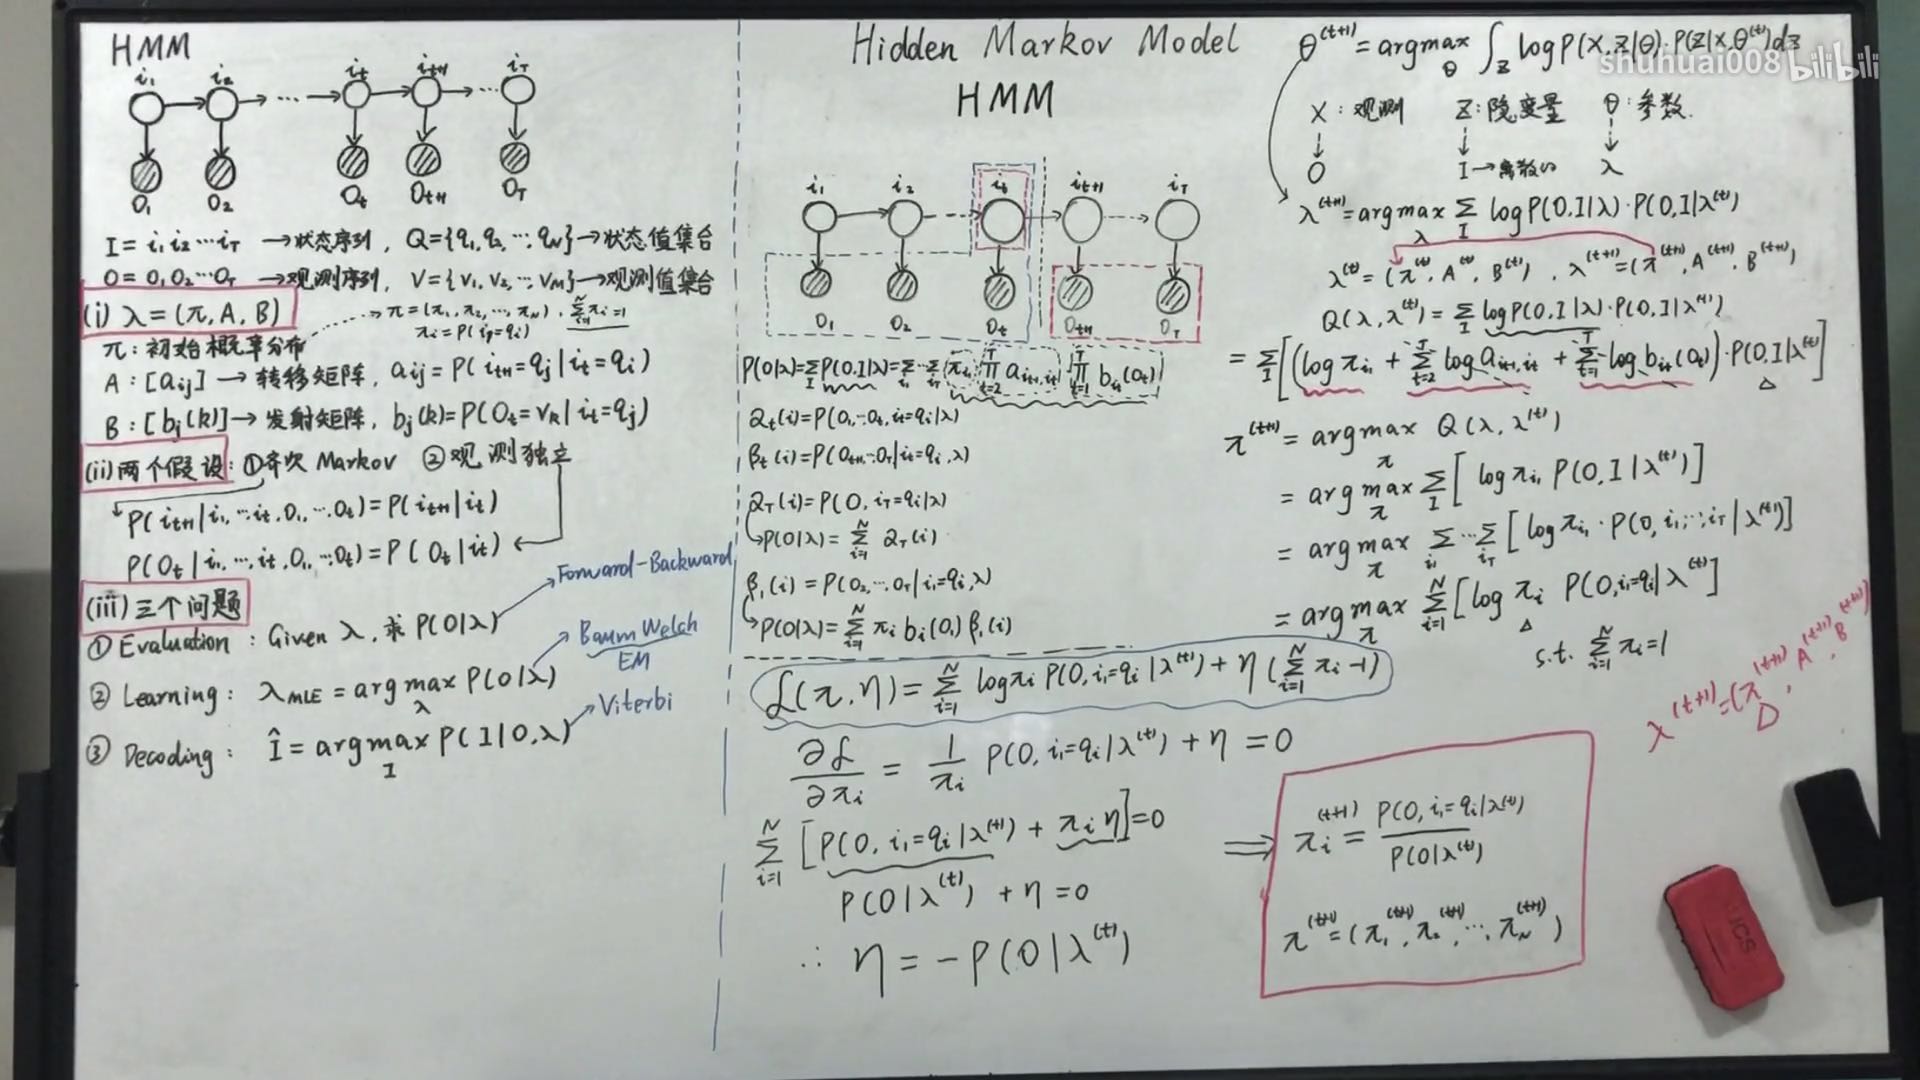 HMM
i₁ i₂ iₜ iₜ₊₁ i_T
... ...
O₁ O₂ Oₜ Oₜ₊₁ O_T
I = i₁ i₂ ⋯ i_T → 状态序列, Q = {q₁, q₂, ⋯, q_N} → 状态值集合
O = O₁ O₂ ⋯ O_T → 观测序列, V = {v₁, v₂, ⋯, v_M} → 观测值集合
(i) λ = (π, A, B)
π = (π₁, π₂, ⋯, π_N), Σ_{i=1}^N πᵢ = 1
π: 初始概率分布
A: [aᵢⱼ] → 转移矩阵, aᵢⱼ = P(iₜ₊₁ = qⱼ | iₜ = qᵢ)
B: [bⱼ(k)] → 发射矩阵, bⱼ(k) = P(Oₜ = v_k | iₜ = qⱼ)
(ii) 两个假设: ① 齐次 Markov ② 观测独立
P(iₜ₊₁ | i₁, ⋯ iₜ, O₁, ⋯ Oₜ) = P(iₜ₊₁ | iₜ)
P(Oₜ | i₁, ⋯, iₜ, O₁, ⋯, Oₜ) = P(Oₜ | iₜ)
(iii) 三个问题
① Evaluation: Given λ, 求 P(O|λ)
Forward-Backward
② Learning: λ_MLE = argmax_λ P(O|λ)
Baum Welch
EM
③ Decoding: Î = argmax_I P(I|O, λ)
Viterbi
Hidden Markov Model
HMM
i₁ i₂ iₜ iₜ₊₁ i_T
O₁ O₂ Oₜ Oₜ₊₁ O_T
P(O|λ) = Σ_I P(O, I|λ) = Σ_{i₁} ⋯ Σ_{i_T} π_{i₁} ∏_{t=2}^T a_{iₜ₊₁, iₜ} ∏_{t=1}^T b_{iₜ}(Oₜ)
αₜ(i) = P(O₁, ⋯ Oₜ, iₜ = qᵢ | λ)
βₜ(i) = P(Oₜ₊₁, ⋯ O_T | iₜ = qᵢ, λ)
α_T(i) = P(O, i_T = qᵢ | λ)
P(O|λ) = Σ_{i=1}^N α_T(i)
β₁(i) = P(O₂, ⋯ O_T | i₁ = qᵢ, λ)
P(O|λ) = Σ_{i=1}^N πᵢ bᵢ(O₁) β₁(i)
ℒ(π, η) = Σ_{i=1}^N log πᵢ P(O, i₁ = qᵢ | λ^(t)) + η (Σ_{i=1}^N πᵢ − 1)
∂ℒ/∂πᵢ = 1/πᵢ P(O, i₁ = qᵢ | λ^(t)) + η = 0
Σ_{i=1}^N [P(O, i₁ = qᵢ | λ^(t)) + πᵢ η] = 0
P(O|λ^(t)) + η = 0
∴ η = −P(O|λ^(t))
θ^(t+1) = argmax_θ ∫_Z log P(X, Z|θ) · P(Z|X, θ^(t)) dz
shuhuai008 bilibili
X: 观测 Z: 隐变量 θ: 参数.
O I → 离散的 λ
λ^(t+1) = argmax_λ Σ_I log P(O, I|λ) · P(O, I|λ^(t))
λ^(t) = (π^(t), A^(t), B^(t)), λ^(t+1) = (π^(t+1), A^(t+1), B^(t+1))
Q(λ, λ^(t)) = Σ_I log P(O, I|λ) · P(O, I|λ^(t))
= Σ_I [(log π_{i₁} + Σ_{t=2}^T log a_{iₜ₊₁, iₜ} + Σ_{t=1}^T log b_{iₜ}(Oₜ)) · P(O, I|λ^(t))]
Δ
π^(t+1) = argmax_π Q(λ, λ^(t))
= argmax_π Σ_I [log π_{i₁} P(O, I|λ^(t))]
= argmax_π Σ_{i₁} ⋯ Σ_{i_T} [log π_{i₁} · P(O, i₁, ⋯, i_T | λ^(t))]
= argmax_π Σ_{i=1}^N [log πᵢ P(O, i₁ = qᵢ | λ^(t))]
Δ
s.t. Σ_{i=1}^N πᵢ = 1
λ^(t+1) = (π^(t+1), A^(t+1), B^(t+1))
Δ
⇒ πᵢ^(t+1) = P(O, i₁ = qᵢ | λ^(t)) / P(O|λ^(t))
π^(t+1) = (π₁^(t+1), π₂^(t+1), ⋯, π_N^(t+1))